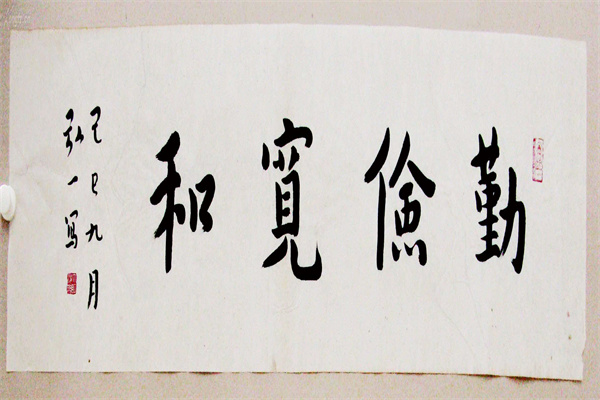 勤儉寬和
己巳九月
弘一寫